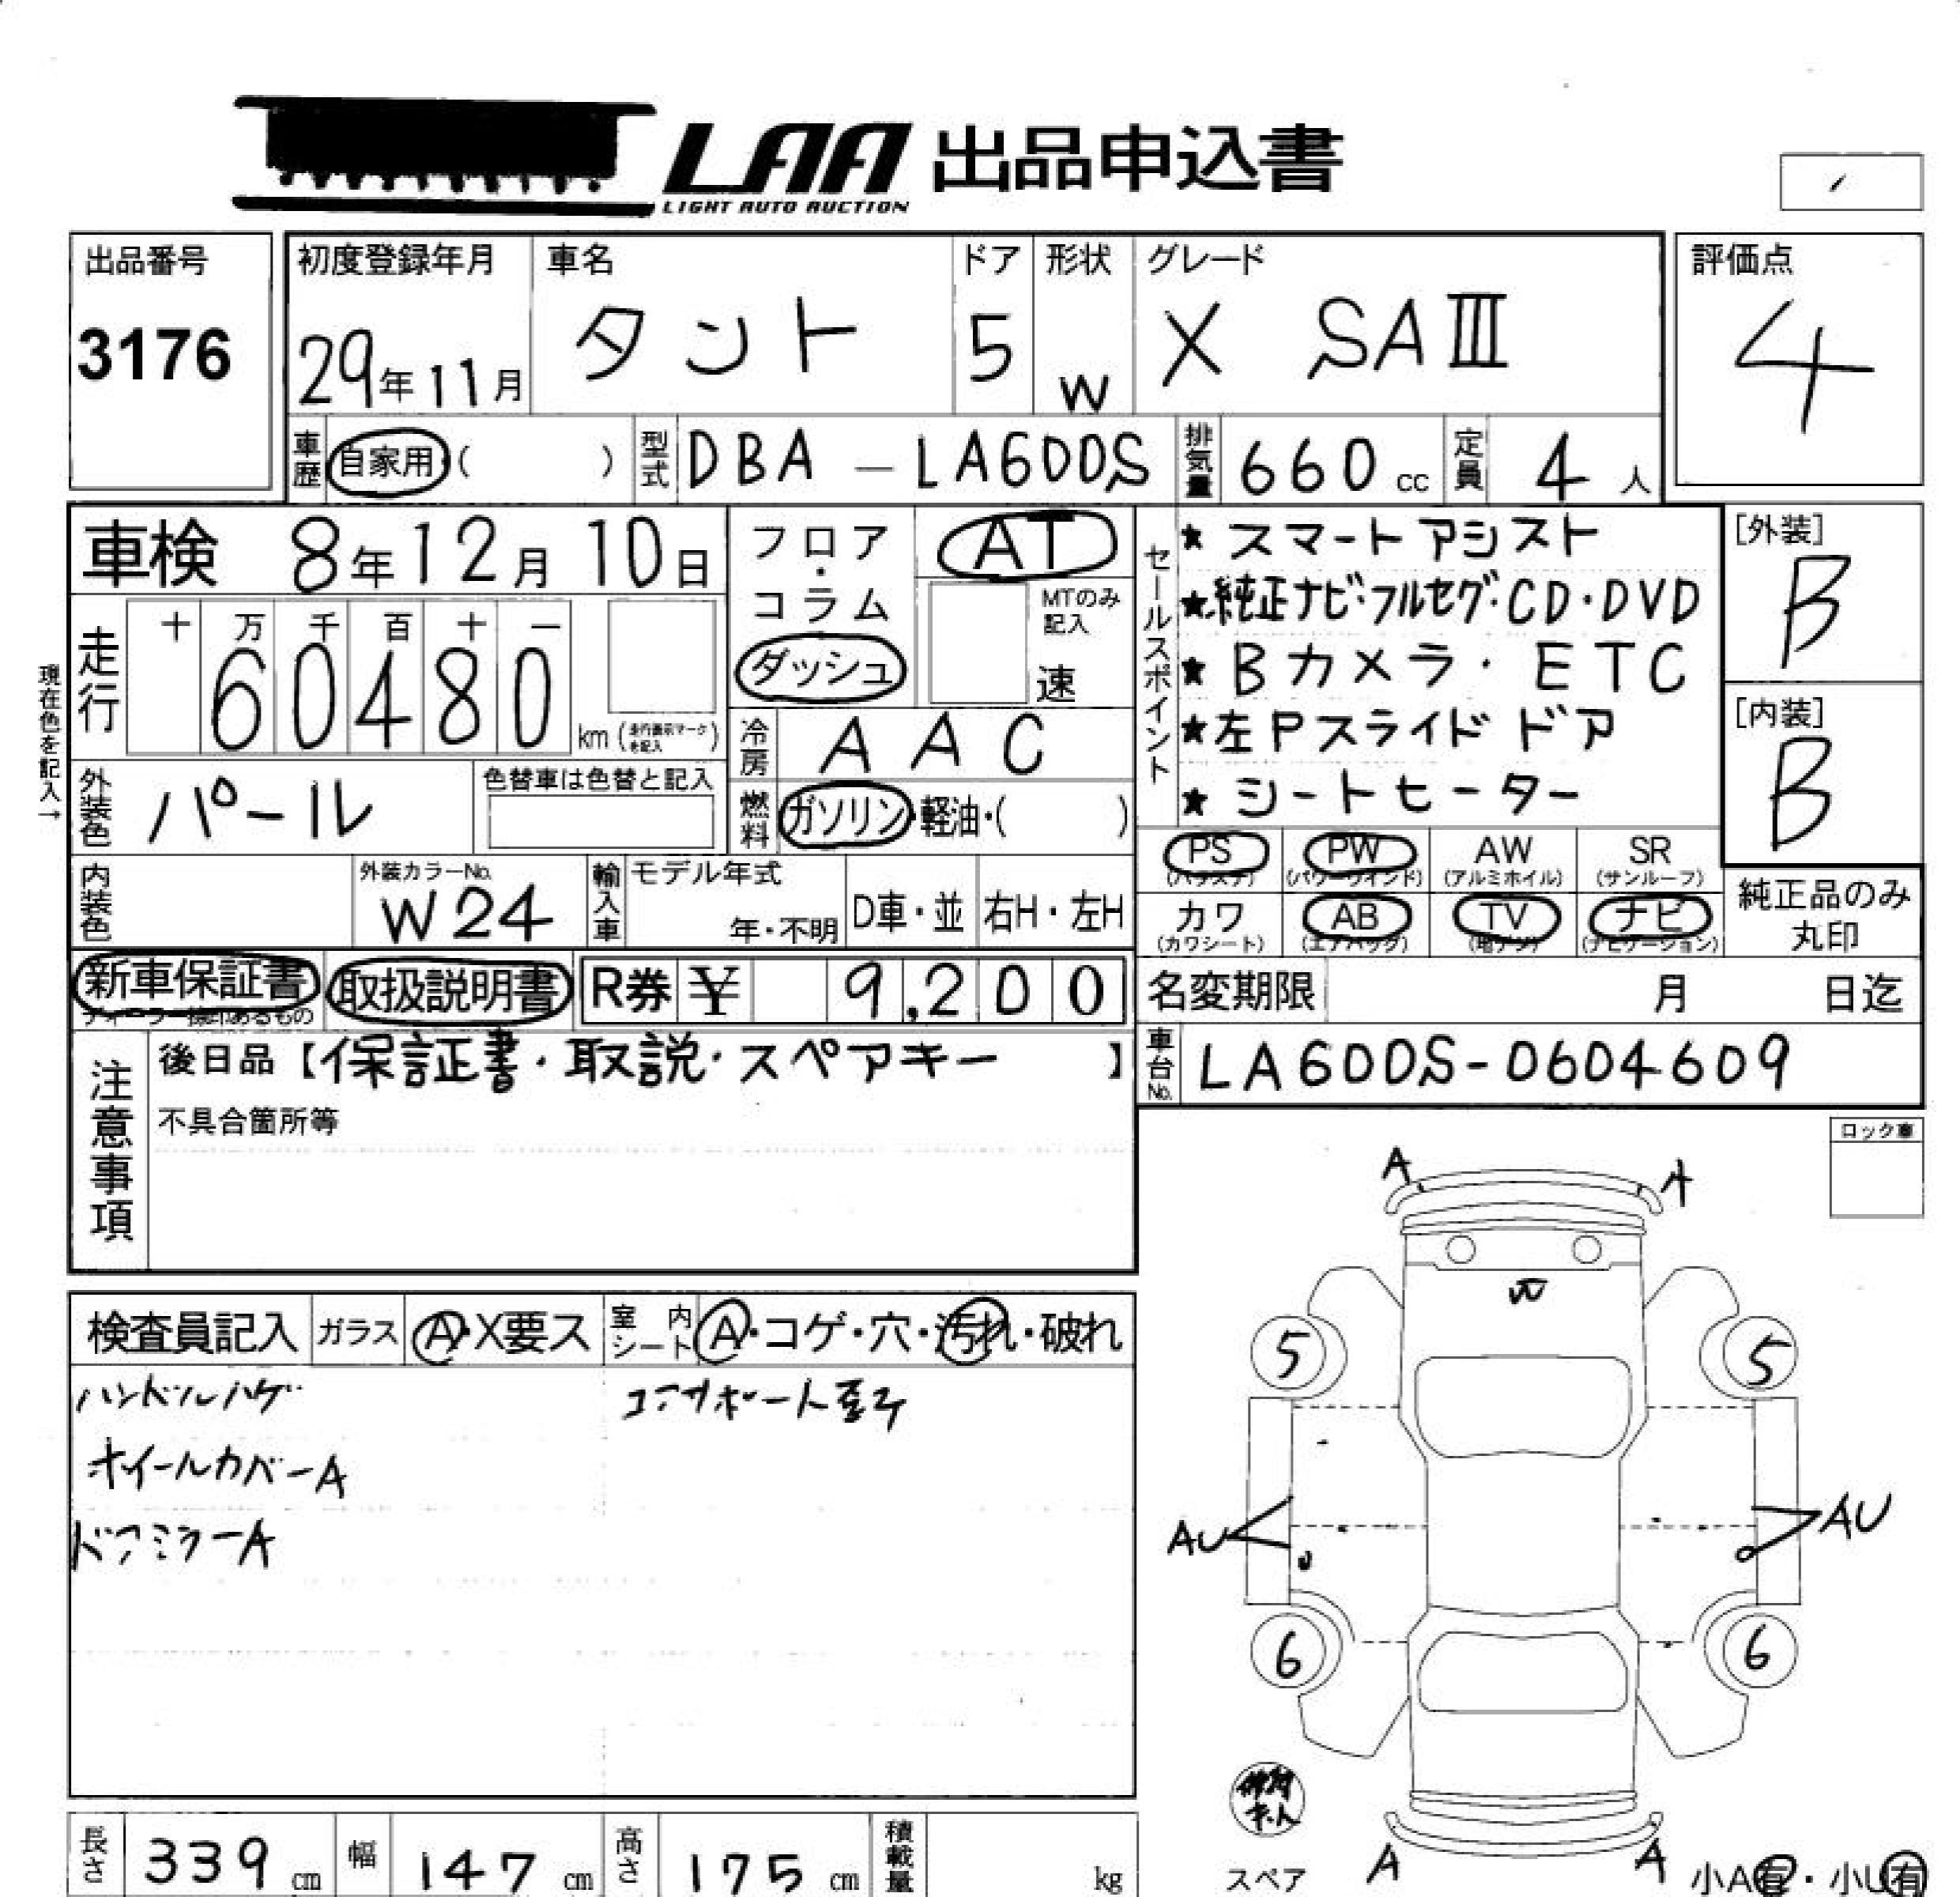 LAA 出品申込書
LIGHT AUTO AUCTION
出品番号 初度登録年月 車名 ドア 形状 グレード 評価点
3176 29年11月 タント 5 W X SAⅢ 4
車歴 自家用 ( ) 型式 DBA-LA600S 排気量 660 cc 定員 4 人
車検 8年12月10日 フロア・コラム ダッシュ AT
MTのみ記入 速
セールスポイント
★スマートアシスト
★純正ナビ・フルセグ・CD・DVD
★Bカメラ・ETC
★左Pスライドドア
★シートヒーター
[外装] B
[内装] B
現在色を記入→
走行 十 万 千 百 十 一
60480 km (走行表示マークを記入)
冷房 AAC
外装色 パール 色替車は色替と記入
燃料 ガソリン・軽油・( )
PS (パワステ) PW (パワーウインド) AW (アルミホイル) SR (サンルーフ)
カワ (カワシート) AB (エアバッグ) TV (地デジ) ナビ (ナビゲーション)
純正品のみ丸印
内装色 外装カラーNo. W24 輸入車 モデル年式 年・不明 D車・並 右H・左H
新車保証書 取扱説明書 R券 ¥ 9,200
名変期限 月 日迄
車台No. LA600S-0604609
注意事項
後日品【保証書・取説・スペアキー】
不具合箇所等
ロック車
検査員記入 ガラス A・X要ス 室内シート A・コゲ・穴・汚れ・破れ
ハンドルハゲ
ホイールカバーA
ドアミラーA
A A
5 5
AU AU
6 6
A A
スペア 小A有・小U有
長さ 339 cm 幅 147 cm 高さ 175 cm 積載量 kg